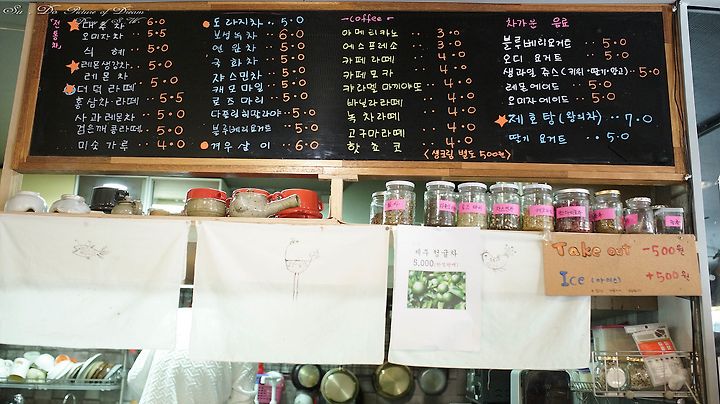 Su - Da Picture of Dream
전통차
대추차 6.0
오미자차 5.0
식혜 5.0
레몬생강차 5.0
레몬차 5.0
더덕라떼 5.0
홍삼차라떼 5.5
사과레몬차 5.0
검은깨콩라떼 5.0
미소가루 4.0
도라지차 5.0
보성녹차 6.0
연잎차 5.0
국화차 5.0
쟈스민차 5.0
캐모마일 5.0
로즈마리 5.0
다즐링히말라야 5.0
블루베리요거트 5.0
겨우살이 6.0
-coffee-
아메리카노 3.0
에스프레소 3.0
카페라떼 4.0
카페모카 4.0
카라멜마끼야또 4.0
바닐라라떼 4.0
녹차라떼 4.0
고구마라떼 4.0
핫쵸코 4.0
<생크림 별도 500원>
차가운 음료
블루베리요거트 5.0
오디 요거트 5.0
생과일 쥬스(키위·딸기·망고) 5.0
레몬에이드 5.0
오미자에이드 5.0
제호탕(왕의차) 7.0
딸기 요거트 5.0
제주 청귤차
5,000
Take out -500원
Ice (아이스) +500원